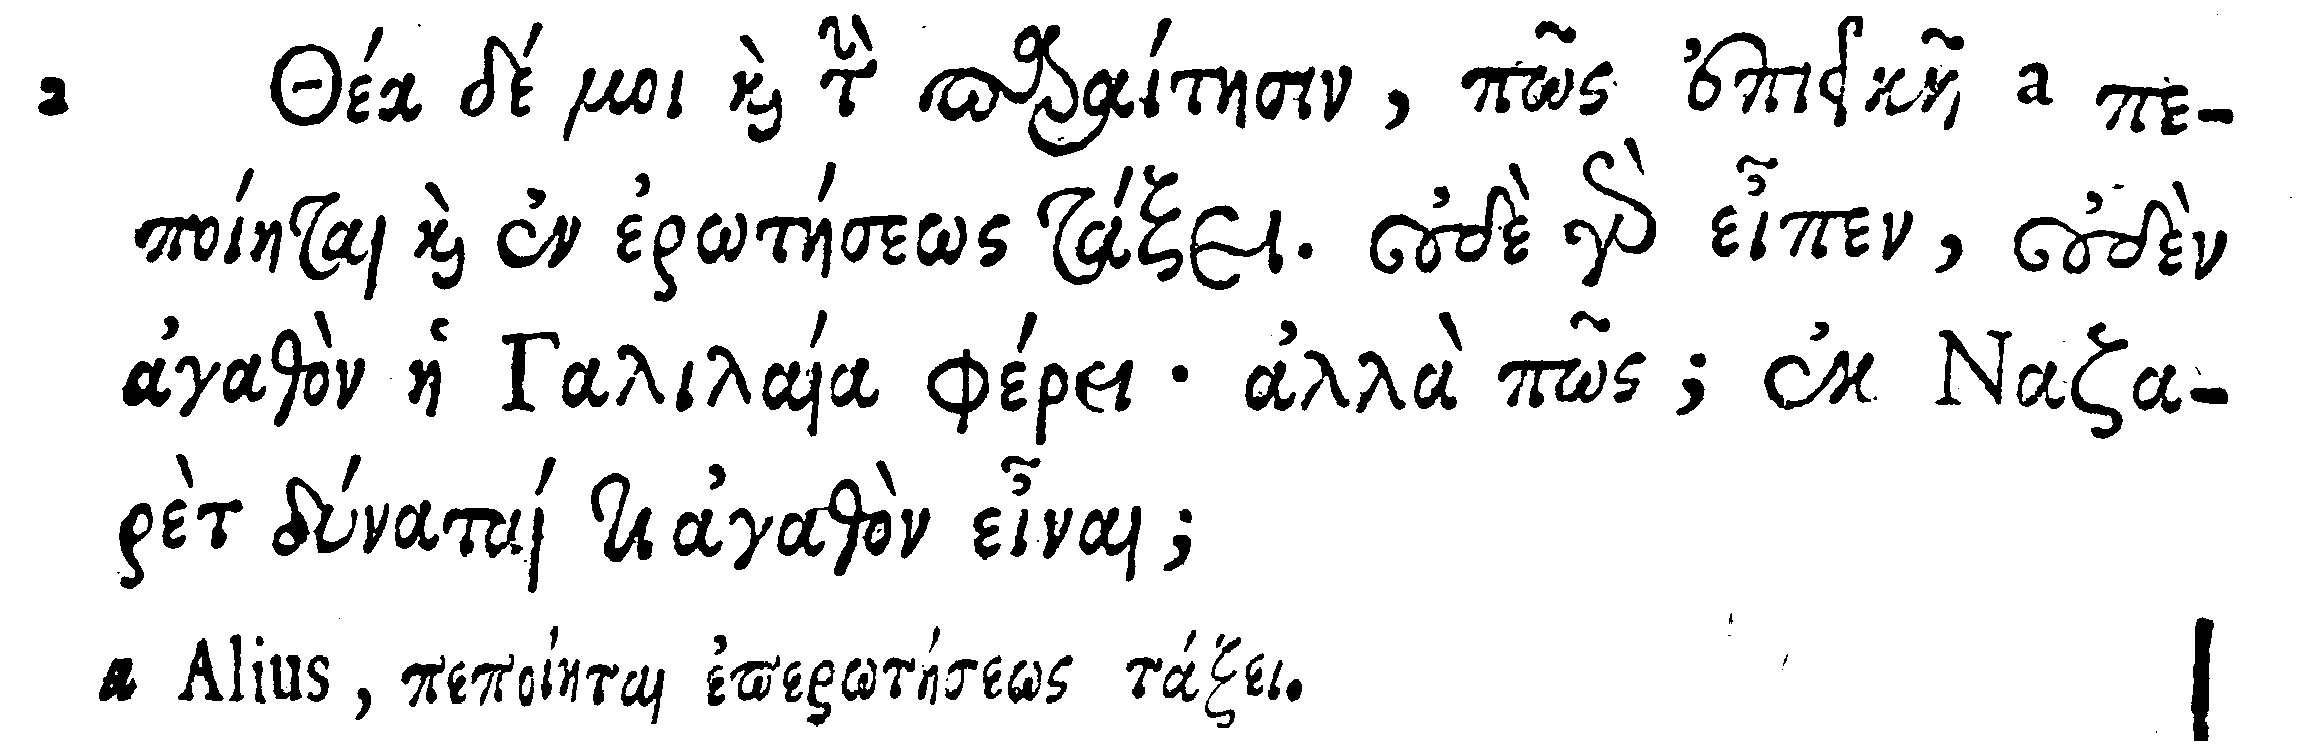 2 Θέα δέ μοι καὶ τὴν παραίτησιν, πῶς ἐπιεικῆ a πε-
ποίηται καὶ ἐν ἐρωτήσεως τάξει. οὐδὲ γὰρ εἶπεν, οὐδὲν
ἀγαθὸν ἡ Γαλιλαία φέρει· ἀλλὰ πῶς; ἐκ Ναζα-
ρὲτ δύναταί τι ἀγαθὸν εἶναι;
a Alius, πεποίηται ἐπερωτήσεως τάξει.